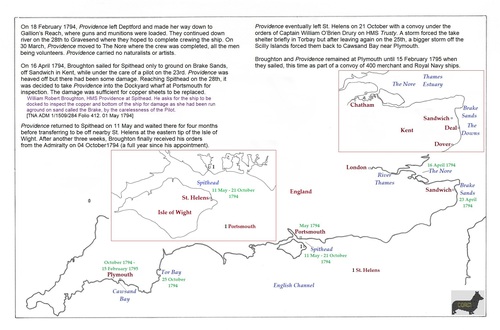 On 18 February 1794, Providence left Deptford and made her way down to
Gallion's Reach, where guns and munitions were loaded. They continued down
river on the 28th to Gravesend where they hoped to complete crewing the ship. On
30 March, Providence moved to The Nore where the crew was completed, all the men
being volunteers. Providence carried no naturalists or artists.
On 16 April 1794, Broughton sailed for Spithead only to ground on Brake Sands,
off Sandwich in Kent, while under the care of a pilot on the 23rd. Providence was
heaved off but there had been some damage. Reaching Spithead on the 28th, it
was decided to take Providence into the Dockyard wharf at Portsmouth for
inspection. The damage was sufficient for copper sheets to be replaced.
William Robert Broughton, HMS Providence at Spithead. He asks for the ship to be
docked to inspect the copper and bottom of the ship for damage as she had been run
aground on sand called the Brake, by the carelessness of the Pilot.
[TNA ADM 1/1509/284 Folio 412, 01 May 1794]
Providence returned to Spithead on 11 May and waited there for four months
before transferring to be off nearby St. Helens at the eastern tip of the Isle of
Wight. After another three weeks, Broughton finally received his orders
from the Admiralty on 04 October1794 (a full year since his appointment).
Providence eventually left St. Helens on 21 October with a convoy under the
orders of Captain William O'Brien Drury on HMS Trusty. A storm forced the take
shelter briefly in Torbay but after leaving again on the 25th, a bigger storm off the
Scilly Islands forced them back to Cawsand Bay near Plymouth.
Broughton and Providence remained at Plymouth until 15 February 1795 when
they sailed, this time as part of a convoy of merchant and Royal Navy ships.
The Nore
Thames
Estuary
Chatham
Kent
Sandwich
Deal
Dover
Brake
Sands
The
Downs
London
River
Thames
16 April 1794
The Nore
Sandwich
Brake
Sands
23 April
1794
1
Spithead
11 May - 21 October
1794
St. Helens
Isle of Wight
1 Portsmouth
England
May 1794
Portsmouth
Spithead
11 May - 21 October
1794
1 St. Helens
English Channel
October 1794 -
15 February 1795
Plymouth
Cawsand
Bay
Tor Bay
25 October
1794